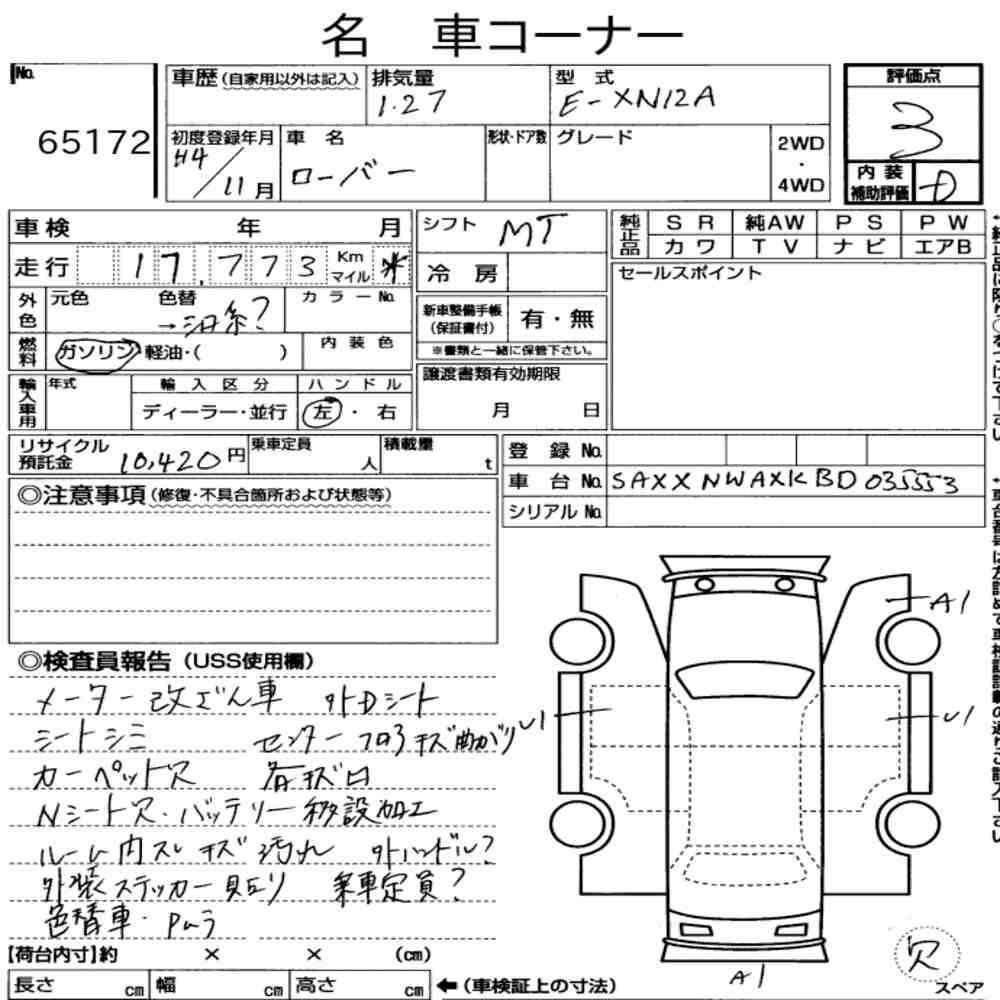 名 車コーナー
No.
65172
車歴 (自家用以外は記入)
排気量
1.27
型 式
E-XN12A
評価点
3
初度登録年月
H4/11月
車 名
ローバー
形状・ドア数
グレード
2WD
・
4WD
内 装
補助評価
D
車検 年 月
走行 17,773 Km マイル *
外色
元色
色替
カラーNo.
燃料
ガソリン・軽油・( )
内 装 色
輸入車用
年式
輸 入 区 分
ハ ン ド ル
ディーラー・並行
左・右
シフト
MT
冷 房
新車整備手帳
(保証書付)
有・無
※書類と一緒に保管下さい。
譲渡書類有効期限
月 日
純正品
S R
純AW
P S
P W
カ ワ
T V
ナ ビ
エアB
セールスポイント
リサイクル
預託金
10,420円
乗車定員
人
積載量
t
登 録 No.
車 台 No.
SAXXNWAXKBD035553
シリアル No.
◎注意事項(修復・不具合箇所および状態等)
◎検査員報告(USS使用欄)
メーター改ざん車
シートシミ
センター
カーペット穴
各キズ凹
Nシート穴・バッテリー移設加工
ルーム内スレキズ汚れ
外ハンドル?
外装ステッカー貼り
乗車定員?
色替車・Pムラ
A1
U1
U1
A1
【荷台内寸】約 × × (cm)
長さ cm
幅 cm
高さ cm
←(車検証上の寸法)
欠
スペア